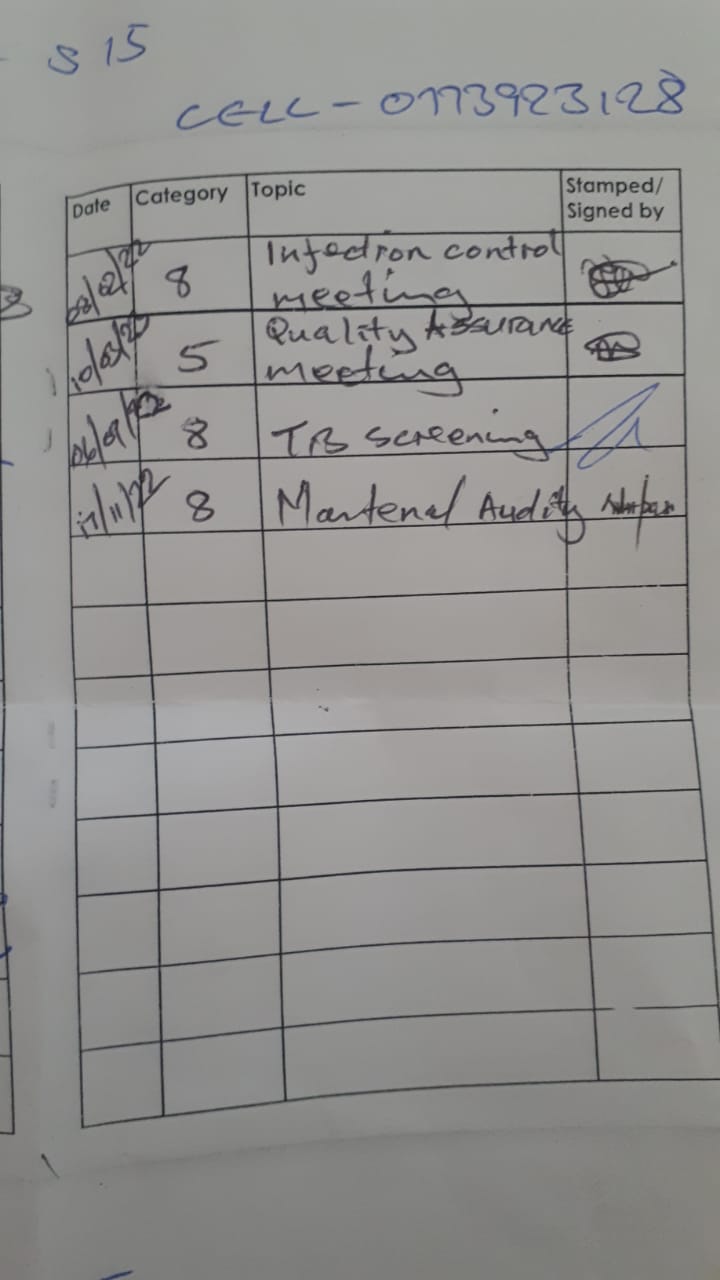 S 15
CELL - 0773923128
Date Category Topic Stamped/
Signed by
8 Infection control
meeting
5 Quality Assurance
meeting
8 TB screening
17/11/22 8 Martenal Audity